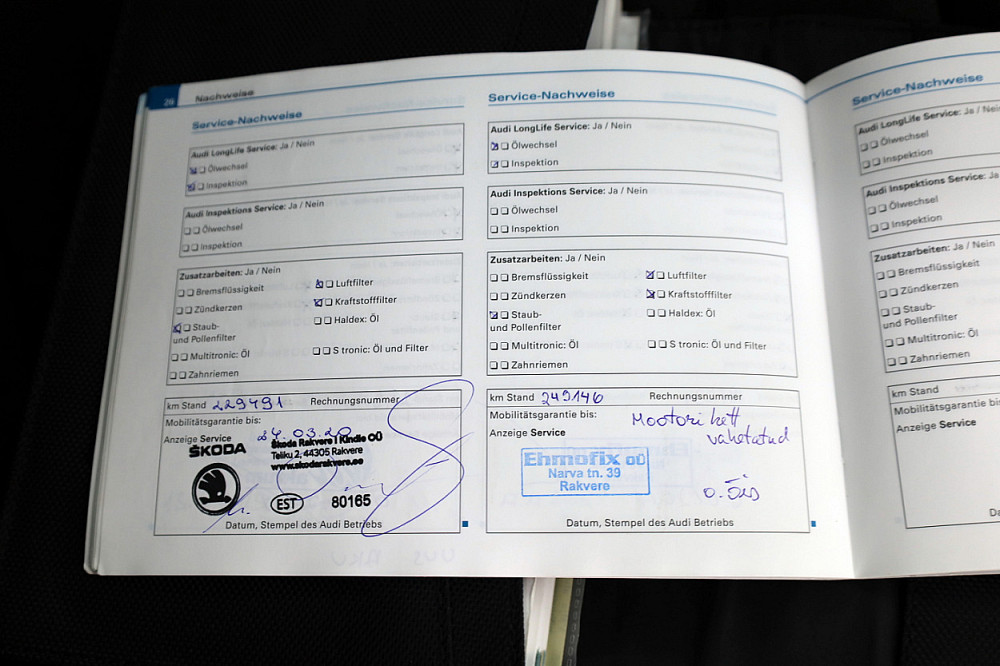 26 Nachweise
Service-Nachweise
Audi LongLife Service: Ja / Nein
Ölwechsel
Inspektion
Audi Inspektions Service: Ja / Nein
Ölwechsel
Inspektion
Zusatzarbeiten: Ja / Nein
Bremsflüssigkeit
Luftfilter
Zündkerzen
Kraftstofffilter
Staub-
und Pollenfilter
Haldex: Öl
Multitronic: Öl
S tronic: Öl und Filter
Zahnriemen
km Stand 229491 Rechnungsnummer
Mobilitätsgarantie bis:
Anzeige Service 24.03.20
ŠKODA
Škoda Rakvere I Kindle OÜ
Teliku 2, 44305 Rakvere
www.skodarakvere.ee
EST 80165
Datum, Stempel des Audi Betriebs
Service-Nachweise
Audi LongLife Service: Ja / Nein
Ölwechsel
Inspektion
Audi Inspektions Service: Ja / Nein
Ölwechsel
Inspektion
Zusatzarbeiten: Ja / Nein
Bremsflüssigkeit
Luftfilter
Zündkerzen
Kraftstofffilter
Staub-
und Pollenfilter
Haldex: Öl
Multitronic: Öl
S tronic: Öl und Filter
Zahnriemen
km Stand 249146 Rechnungsnummer
Mobilitätsgarantie bis:
Mootori kett
vahetatud
Anzeige Service
Ehmofix OÜ
Narva tn. 39
Rakvere
Datum, Stempel des Audi Betriebs
Service-Nachweise
Audi LongLife Service: Ja / Nein
Ölwechsel
Inspektion
Audi Inspektions Service: Ja /
Ölwechsel
Inspektion
Zusatzarbeiten: Ja / Nein
Bremsflüssigkeit
Zündkerzen
Staub-
und Pollenfilter
Multitronic: Öl
Zahnriemen
km Stand
Mobilitätsgarantie bis
Anzeige Service